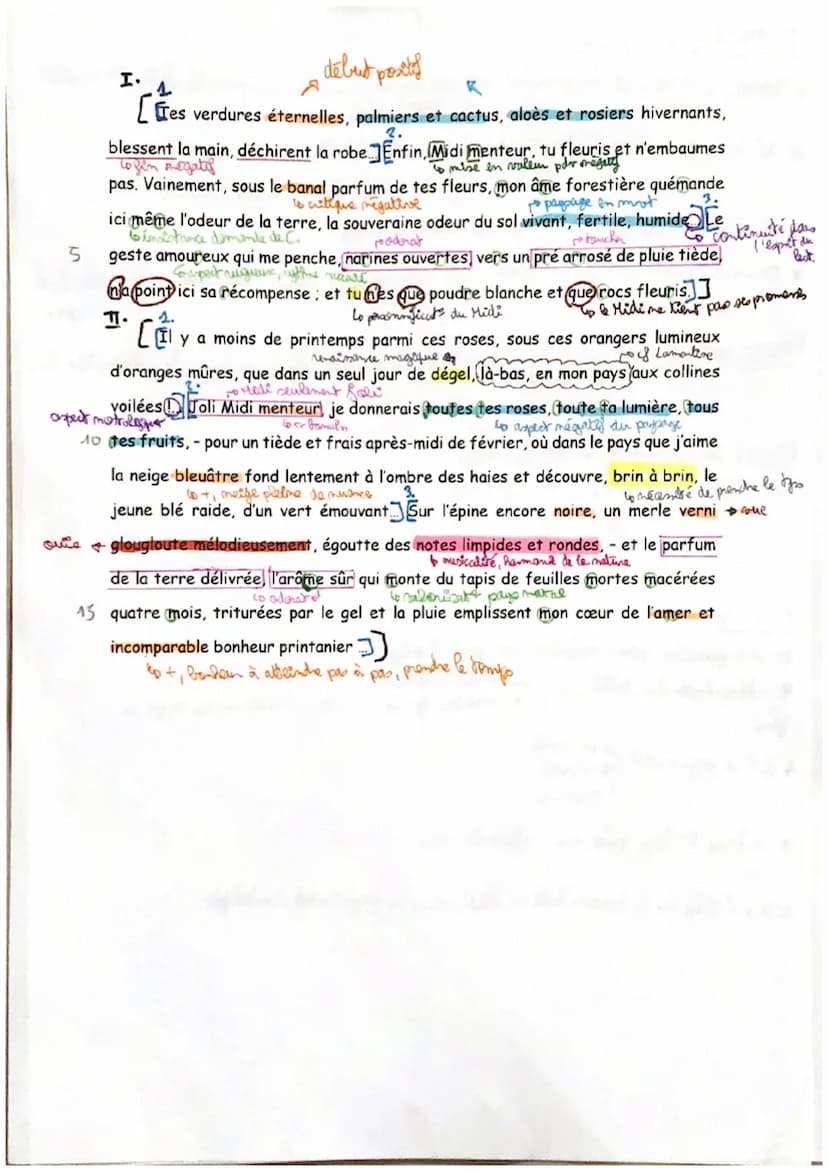 début positif
I.
1.
[[Tes verdures éternelles, palmiers et cactus, aloès et rosiers hivernants,
2.
blessent la main, déchirent la robe…] [Enfin, Midi menteur, tu fleuris et n'embaumes
↳ fin négatif
↳ mise en valeur pdv négatif
pas. Vainement, sous le banal parfum de tes fleurs, mon âme forestière quémande
↳ critique négative
→ paysage en mot
3.
ici même l'odeur de la terre, la souveraine odeur du sol vivant, fertile, humide…] [Le
↳ insistance demande de C.
→ odorat
→ toucher
↳ continuité dans l'esprit du lect.
5 geste amoureux qui me penche, narines ouvertes, vers un pré arrosé de pluie tiède,
↳ aspect rugueux, rythme
n'a point ici sa récompense ; et tu n'es que poudre blanche et que rocs fleuris.]]
↳ personnificat° du Midi
↳ le Midi ne tient pas ses promesses
II.
1.
[[Il y a moins de printemps parmi ces roses, sous ces orangers lumineux
renaissance magique
→ cf Lamartine
d'oranges mûres, que dans un seul jour de dégel, là-bas, en mon pays aux collines
2.
→ Midi seulement joli
voilées !] [Joli Midi menteur, je donnerais toutes tes roses, toute ta lumière, tous
aspect
↳ aspect négatif du paysage
10 tes fruits, - pour un tiède et frais après-midi de février, où dans le pays que j'aime
la neige bleuâtre fond lentement à l'ombre des haies et découvre, brin à brin, le
↳ +, neige pleine de nuance
↳ nécessité de prendre le tps
3.
jeune blé raide, d'un vert émouvant…] [Sur l'épine encore noire, un merle verni → vue
ouïe ← glougloute mélodieusement, égoutte des notes limpides et rondes, - et le parfum
↳ musicalité, harmonie de la nature
de la terre délivrée, l'arôme sûr qui monte du tapis de feuilles mortes macérées
↳ odorat
↳ valorisat° pays natal
15 quatre mois, triturées par le gel et la pluie emplissent mon cœur de l'amer et
incomparable bonheur printanier …]]
↳ +, bonheur à atteindre pas à pas, prendre le temps